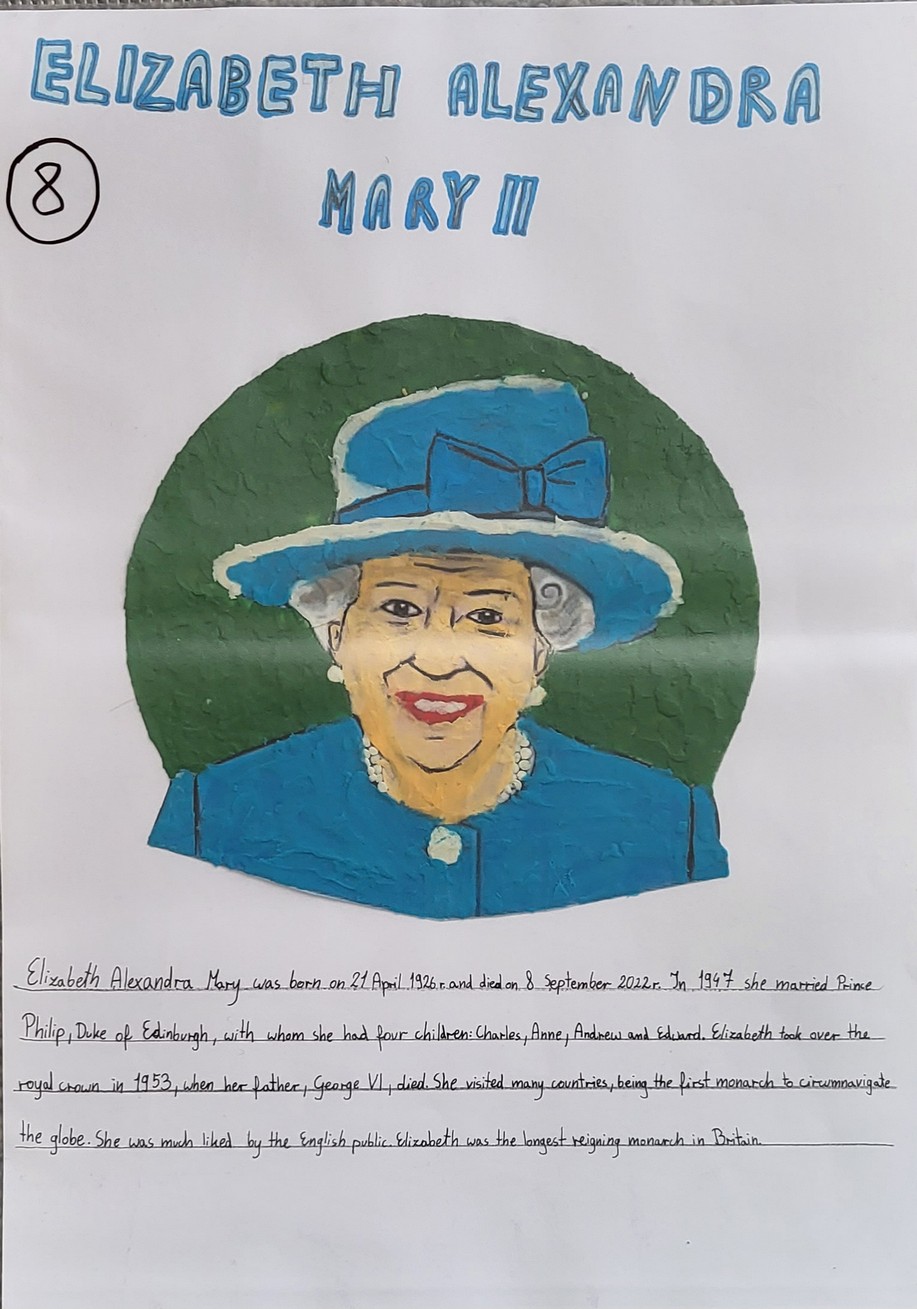 ELIZABETH ALEXANDRA
8
MARY II
Elizabeth Alexandra Mary was born on 21 April 1926r. and died on 8 September 2022r. In 1947 she married Prince
Philip, Duke of Edinburgh, with whom she had four children: Charles, Anne, Andrew and Edward. Elizabeth took over the
royal crown in 1953, when her father, George VI, died. She visited many countries, being the first monarch to circumnavigate
the globe. She was much liked by the English public. Elizabeth was the longest reigning monarch in Britain.